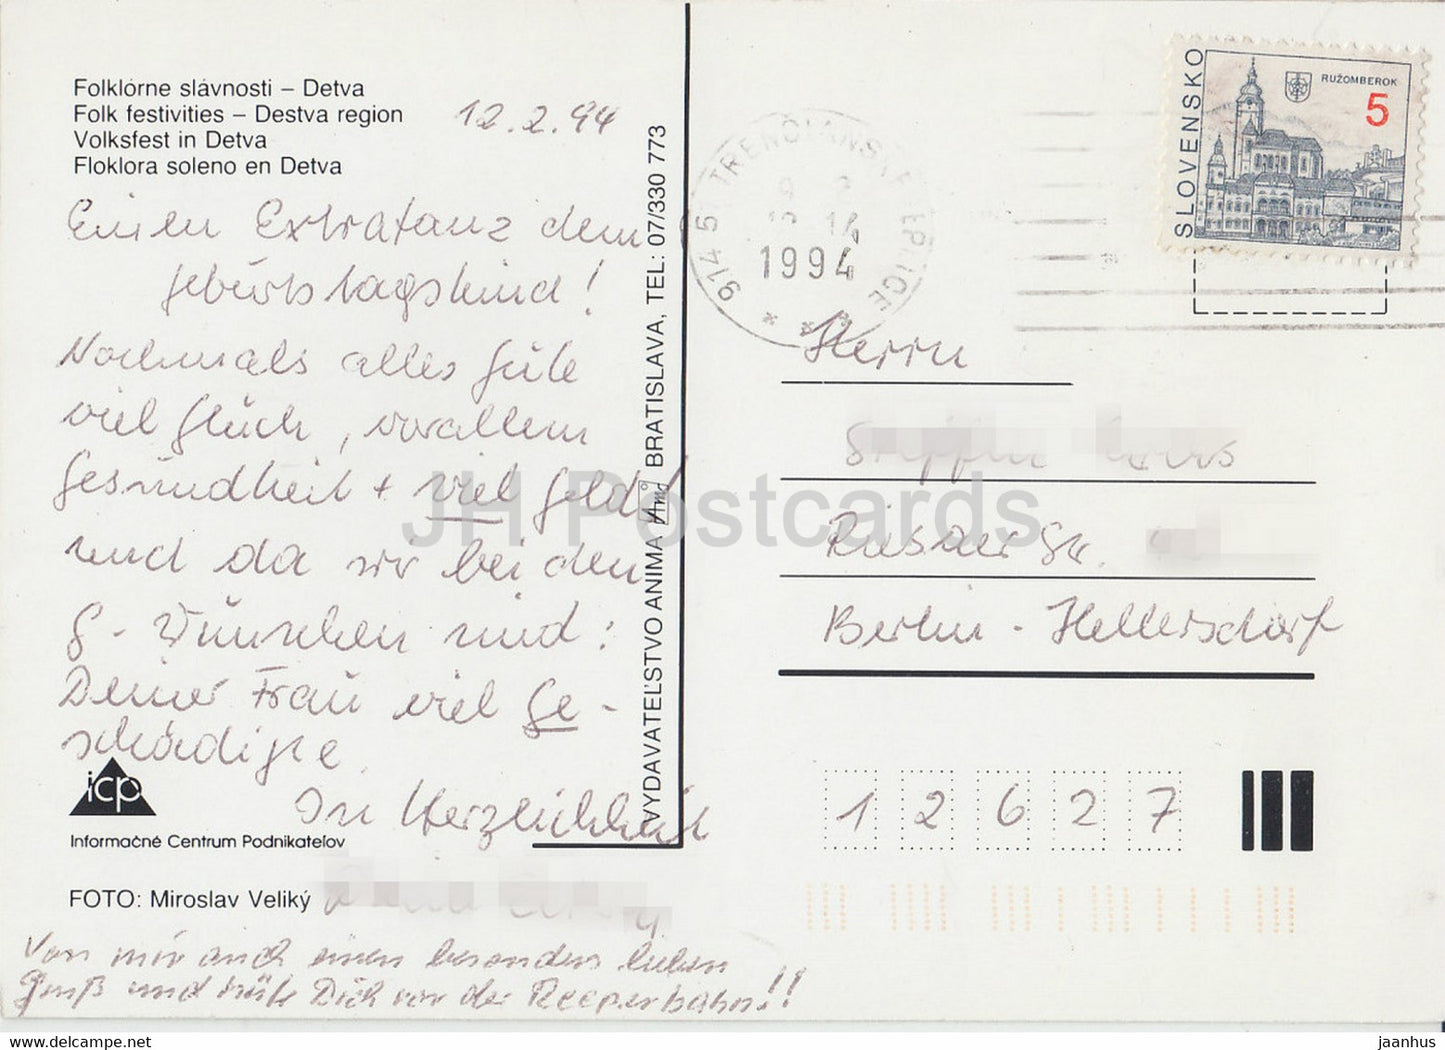 Folklórne slávnosti – Detva
Folk festivities – Destva region
Volksfest in Detva
Floklora soleno en Detva
12.2.94
Einen Extratanz dem
Geburtstagskind!
Nochmals alles Gute
viel Glück, vorallem
Gesundheit + viel Geld!
und da wir bei den
G-Wünschen sind:
Deiner Frau viel Ge-
schädigte.
In Herzlichkeit
icp
Informačné Centrum Podnikateľov
FOTO: Miroslav Veliký
Von mir auch einen besonders lieben
Gruß und hüte Dich vor der Reeperbahn!!
VYDAVATEĽSTVO ANIMA BRATISLAVA, TEL: 07/330 773
91451 TRENČIANSKE TEPLICE
1994
SLOVENSKO
RUŽOMBEROK
5
Herrn
Berlin - Hellersdorf
12627
JH Postcards
www.delcampe.net
jaanhus